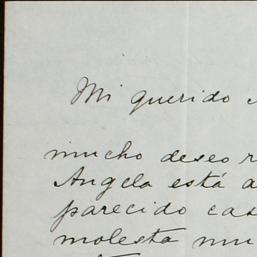 Mi querido
mucho deseo
Angela está
parecido
molesta